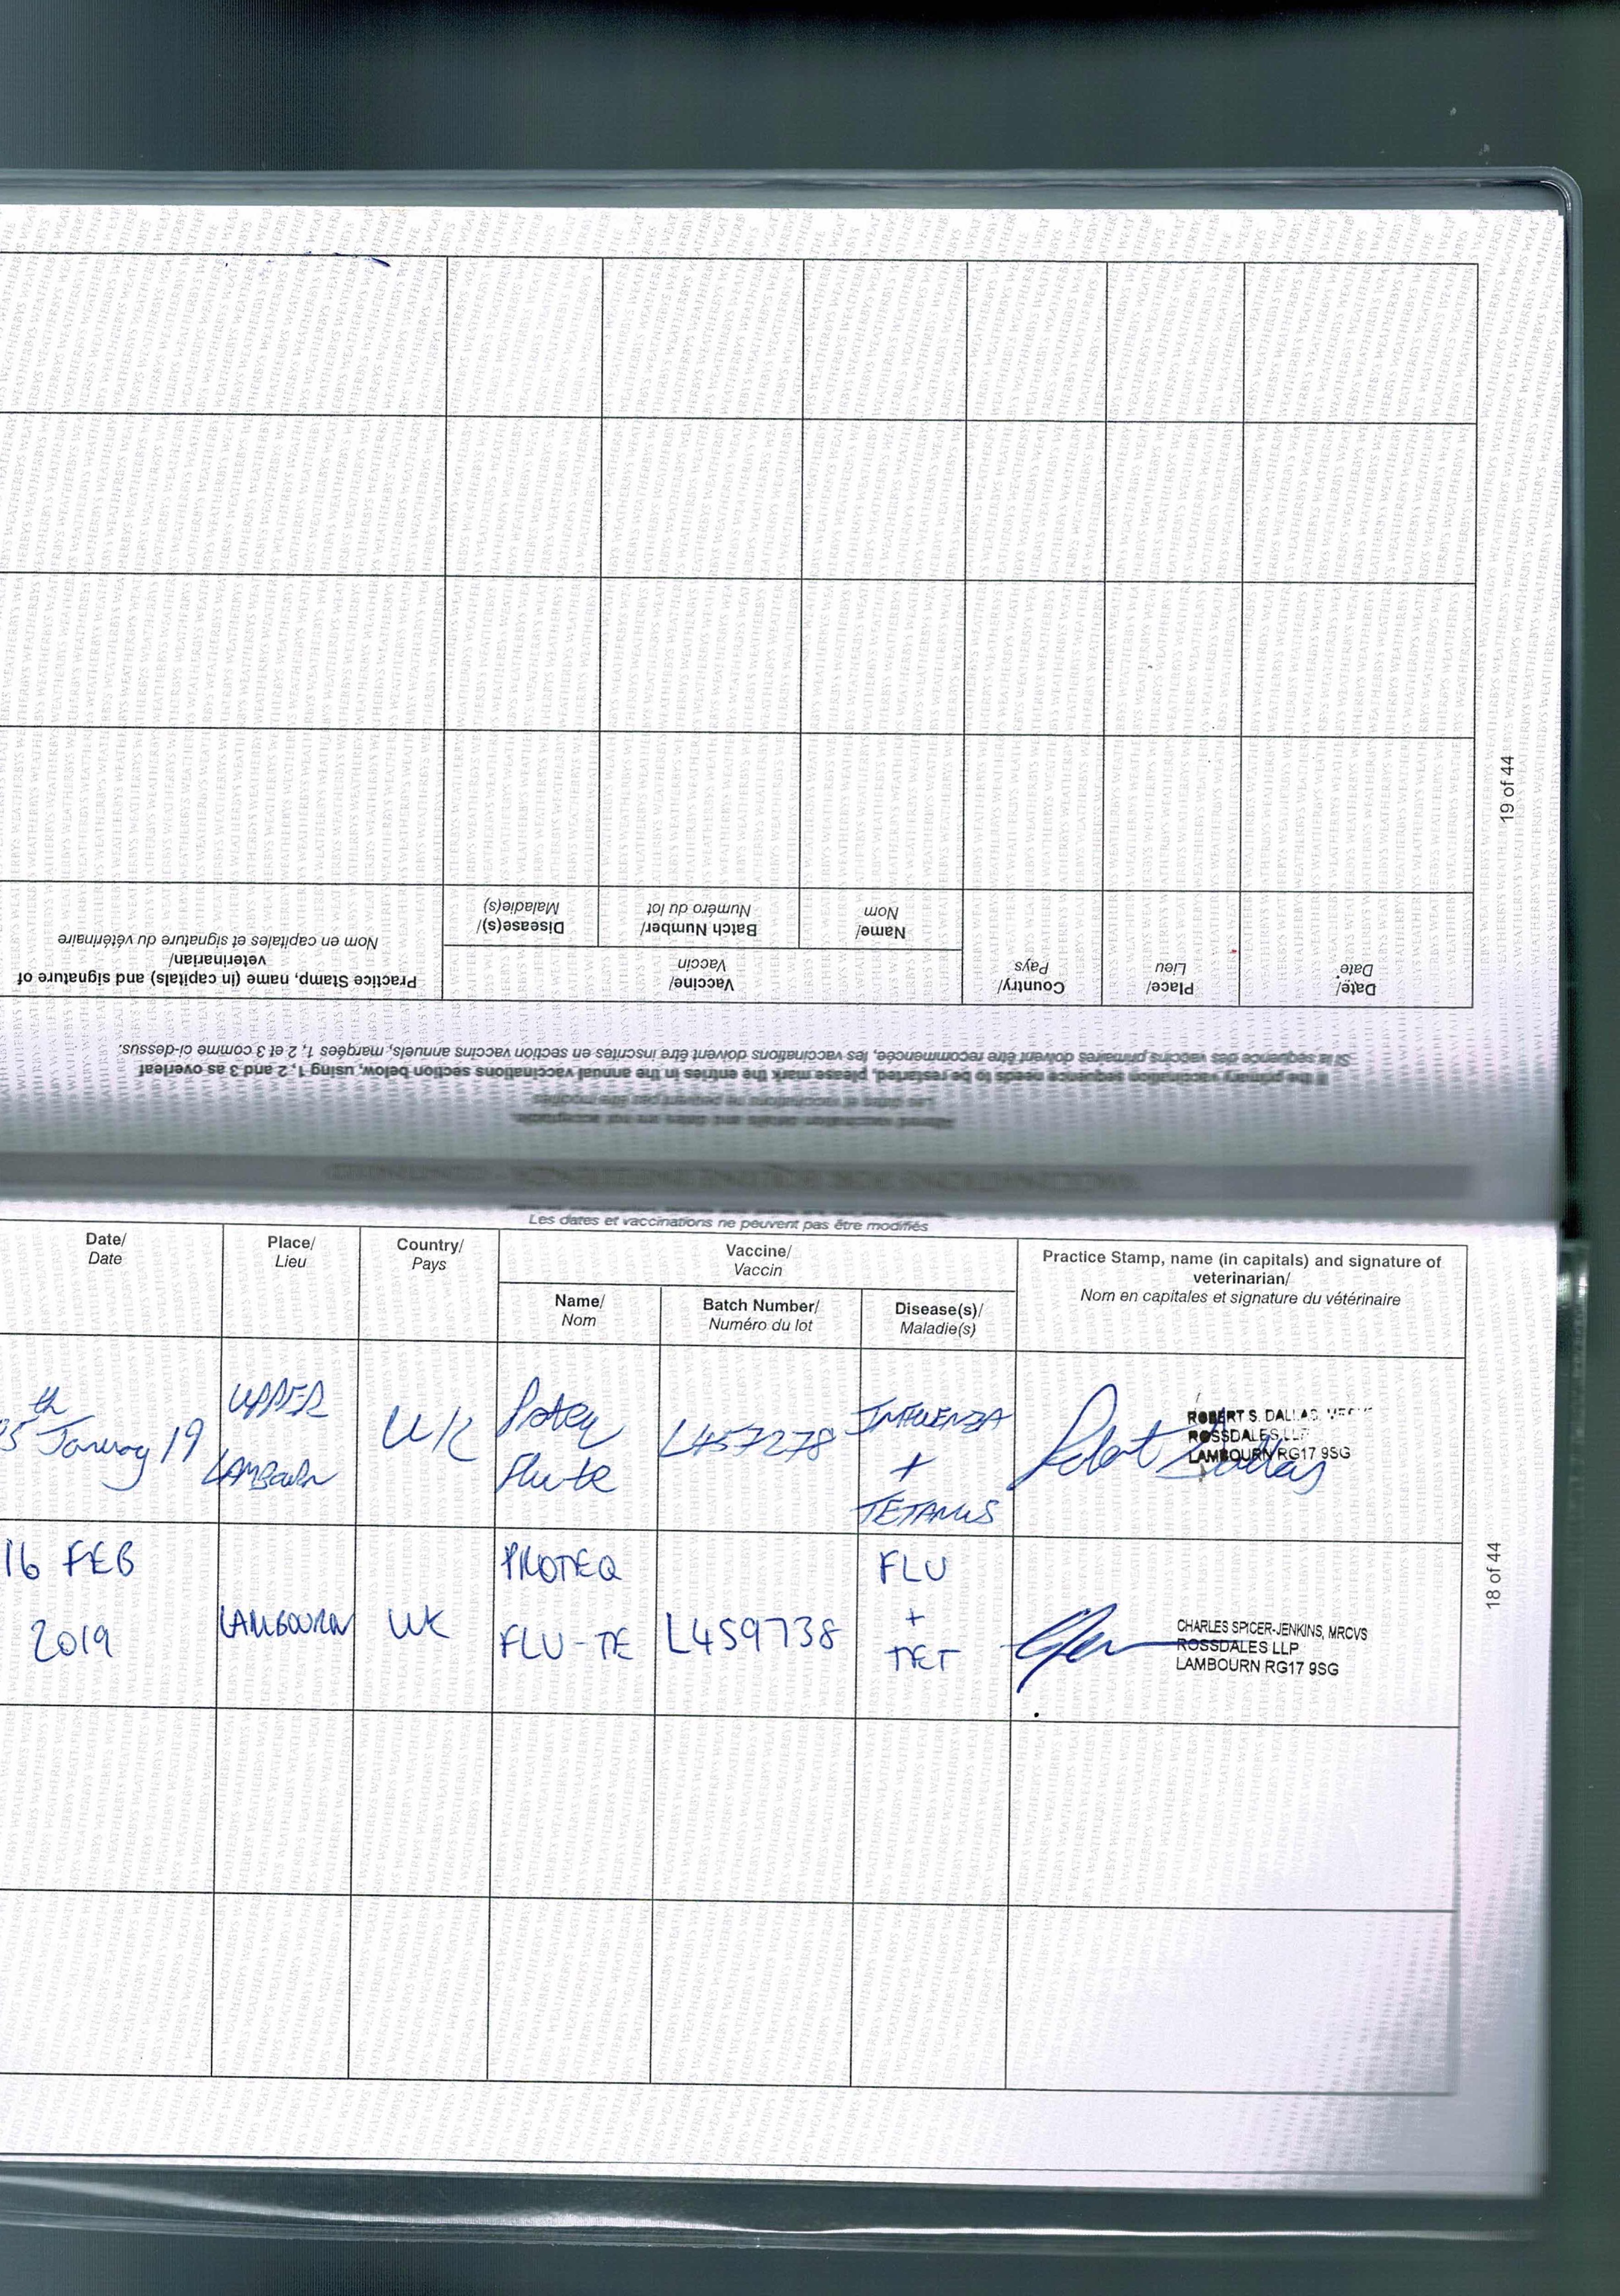 19 of 44
Altered vaccination details and dates are not acceptable.
Les dates et vaccinations ne peuvent pas être modifiés
If the primary vaccination sequence needs to be restarted, please mark the entries in the annual vaccinations section below, using 1, 2 and 3 as overleaf
Si la séquence des vaccins primaires doivent être recommencée, les vaccinations doivent être inscrites en section vaccins annuels, marqées 1, 2 et 3 comme ci-dessus.
Date/
Date
Place/
Lieu
Country/
Pays
Vaccine/
Vaccin
Name/
Nom
Batch Number/
Numéro du lot
Disease(s)/
Maladie(s)
Practice Stamp, name (in capitals) and signature of
veterinarian/
Nom en capitales et signature du vétérinaire
Les dates et vaccinations ne peuvent pas être modifiés
Date/
Date
Place/
Lieu
Country/
Pays
Vaccine/
Vaccin
Name/
Nom
Batch Number/
Numéro du lot
Disease(s)/
Maladie(s)
Practice Stamp, name (in capitals) and signature of
veterinarian/
Nom en capitales et signature du vétérinaire
5th January 19
UPPER
LAMBOURN
UK
Proteq
Flu te
L457278
INFLUENZA
+
TETANUS
Robert Dallas
ROBERT S. DALLAS, MRCVS
ROSSDALES LLP
LAMBOURN RG17 9SG
16 FEB
2019
LAMBOURN
UK
PROTEQ
FLU-TE
L459738
FLU
+
TET
CHARLES SPICER-JENKINS, MRCVS
ROSSDALES LLP
LAMBOURN RG17 9SG
18 of 44